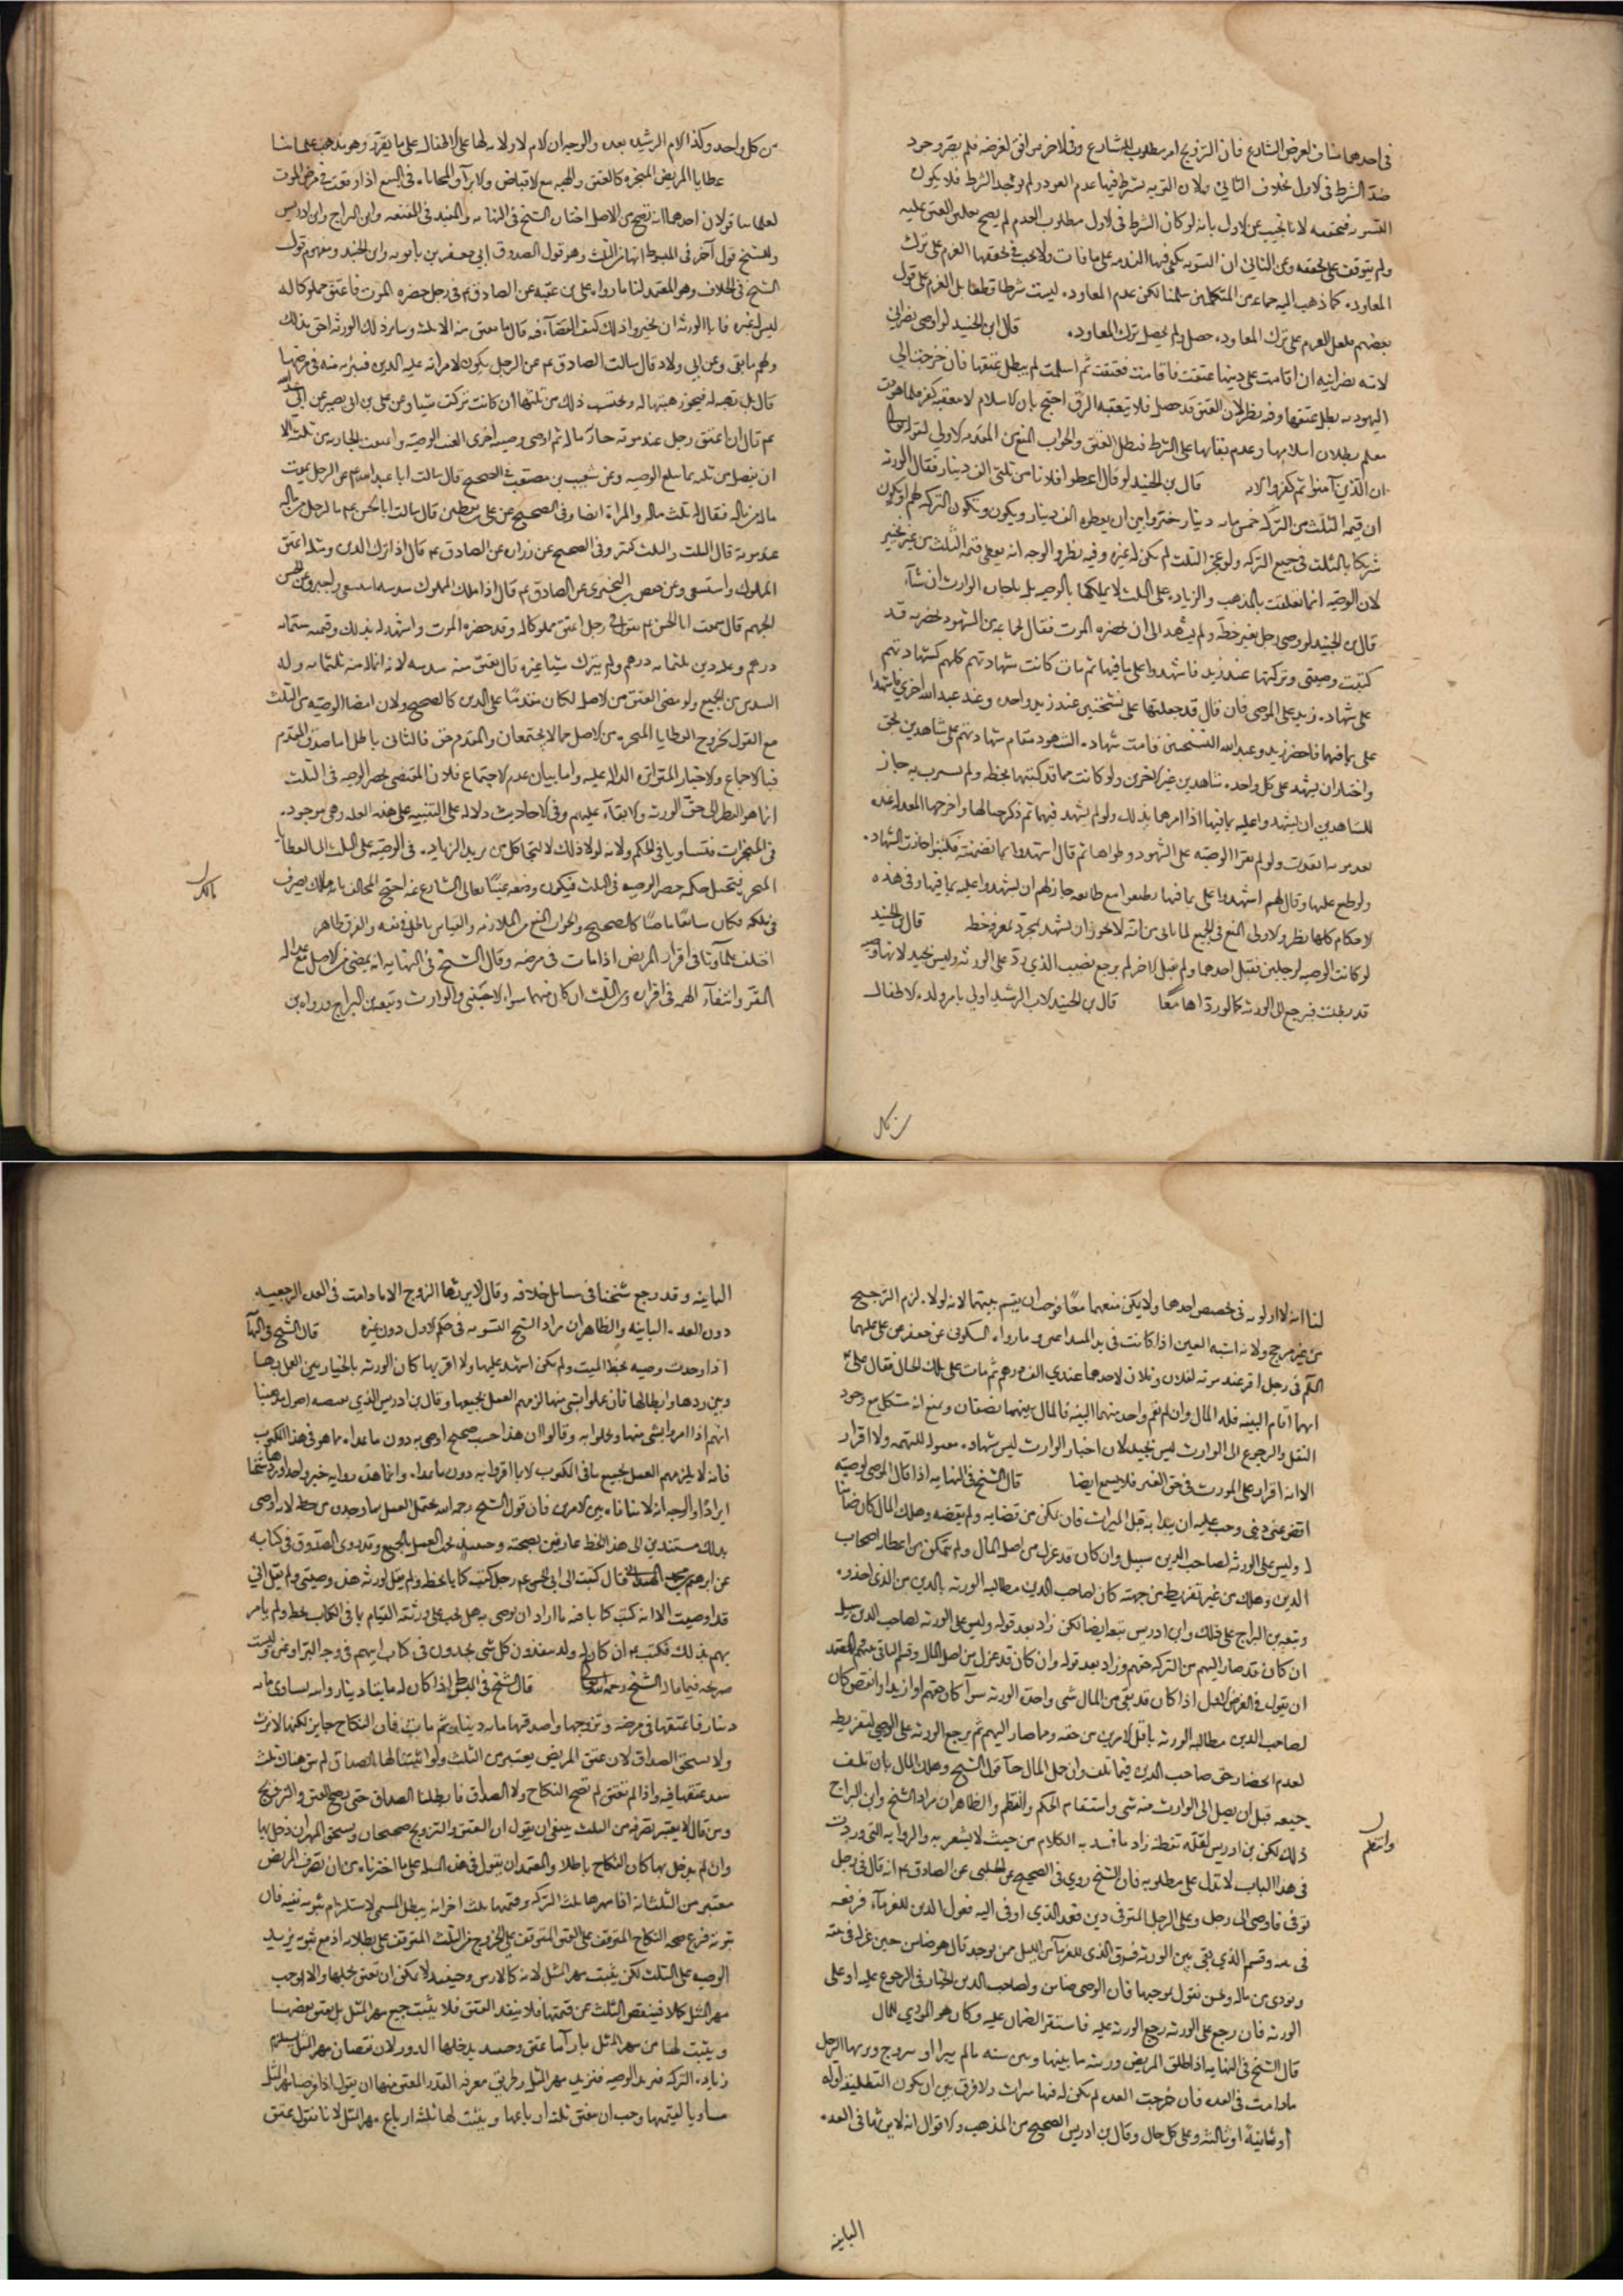 في احدهما مناف لغرض الشارع فان التزويج امر مطلوب للشارع وفي الاخر موافق لغرضه فلم يتصور وجود
ضد الشرط في الاول بخلاف الثاني ولان التوبه يشترط فيها عدم العود ولم يوجد الشرط فلا يكون
ولم يتوقف على تحققه وعن الثاني ان التوبه يكفي فيها الندم على ما فات ولا يجب في تحققها العزم على ترك
المعاوده كما ذهب اليه جماعه من المتكلمين سلمنا لكن عدم المعاوده ليست شرطا قطعا بل العزم على قول
بعضهم فلعل العزم على ترك المعاوده حصل ولم يحصل ترك المعاوده قال ابن الجنيد لو اوصى نصراني
لامته نصرانيه ان اقامت على دينها عتقت فاقامت فعتقت ثم اسلمت لم يبطل عتقها فان خرجت الى
اليهوديه بطل عتقها وفيه نظر لان العتق قد حصل فلا يتعقبه الرق احتج بان الاسلام لا يتعقبه كفر فلما هودت
معلم بطلان اسلامها وعدم بقائها على الشرط فبطل العتق والجواب المنع من المقدمه الاولى لقوله تعالى
ان الذين آمنوا ثم كفروا الايه قال بن الجنيد لو قال اعطوا فلانا من ثلثي الف دينار فقال الورثه
ان قيمه الثلث من التركه خمس مايه دينار خيروا بين ان يعطوه الف دينار ويكون التركه لهم او يكون
شريكا بالثلث في جميع التركه ولو عجز الثلث لم يكن له غيره وفيه نظر والوجه انه يعطى قيمه الثلث من غير تخيير
لان الوصيه انما تعلقت بالمذهب والزياده على الثلث لا يملكها بالوصيه بل باجازه الوارث ان شاء
قال بن الجنيد لو وصى رجل بغير خطه ولم يشهد الى ان حضره الموت فقال لجماعه من الشهود بحضرته قد
كتبت وصيتي وتركتها عند زيد فاشهدوا على ما فيها ثم مات كانت شهادتهم كلهم كشهادتهم
على شهاده زيد على الموصي فان قال قد جعلتها على نسختين عند زيد واحده وعند عبد الله اخرى فاشهدوا
على ما فيها فاحضر زيد وعبد الله النسختين قامت شهاده الشهود مقام شهادتهم على شاهدين بحق
واختار ان يشهد على كل واحد شاهدين غير الاخرين ولو كانت مما قد كتبها بخطه ولم
للشاهدين ان يشهدوا عليه بما فيها اذا امرهما بذلك ولو لم يشهد فيها ثم ذكر حالها واخرجها المعدله عنده
بعد موته انفذت ولو لم يقرا الوصيه على الشهود وطواها ثم قال اشهدوا بما تضمنته فكتبوا جازت الشهاده
ولو طبع عليها وقال لهم اشهدوا على ما فيها وطبعوا مع طابعه جاز لهم ان يشهدوا عليه بما فيها وفي هذه
الاحكام كلها نظر والاولى المنع في الجميع لما ياتي من انه لا يجوز ان يشهد بمجرد معرفه خطه قال الجنيد
لو كانت الوصيه لرجلين فقبل احدهما ولم يقبل الاخر لم يرجع نصيب الذي رد على الورثه وليس بجيد لانها وصيه
قد بطلت فيرجع الى الورثه كما لو رداها معا قال بن الجنيد الاب الرشيد اولى بامر ولده الاطفال
من كل
من كل واحد وكذا الام الرشيده بعده والوجه ان الام لا ولايه لها على الاطفال على ما تقرر وهو مذهب علمائنا
عطايا المريض المنجزه كالعتق والهبه مع الاقباض والابراء والمحاباه في البيع اذا وقعت في مرض الموت
لعلمائنا قولان احدهما انه تصح من الاصل اختاره الشيخ في النهايه والمفيد في المقنعه وابن البراج وابن ادريس
وللشيخ قول آخر في المبسوط انها من الثلث وهو قول الصدوق ابي جعفر بن بابويه وابن الجنيد ومفهوم قول
الشيخ في الخلاف وهو المعتمد لنا ما رواه علي بن عقبه عن الصادق ع في رجل حضره الموت فاعتق مملوكا له
ليس له غيره فابا الورثه ان يجيزوا ذلك كيف القضاء فيه قال ما يعتق منه الا ثلثه وساير ذلك الورثه احق بذلك
ولهم ما بقي وعن ابي ولاد قال سالت الصادق ع عن الرجل يكون لامراته عليه الدين فتبرئه منه في مرضها
قال بل تهبه له فيجوز هبتها له ويحتسب ذلك من ثلثها ان كانت تركت شيئا وعن علي بن ابي بصير عن ابي عبد الله
ع قال ان اعتق رجل عند موته جاريه له ثم اوصى بوصيه اخرى الغيت الوصيه واعتقت الجاريه من ثلثه الا
ان يفضل من ثلثه ما يبلغ الوصيه وعن شعيب بن يعقوب في الصحيح قال سالت ابا عبد الله ع عن الرجل يموت
ماله من ماله فقال له ثلث ماله والمراه ايضا وفي الصحيح عن علي بن يقطين قال سالت ابا الحسن ع ما للرجل من ماله
عند موته قال الثلث والثلث كثير وفي الصحيح عن زراره عن الصادق ع قال اذا ترك الدين ومثله اعتق
المملوك واستسعى وعن حفص بن البختري عن الصادق ع قال اذا ملك المملوك سدسه استسعى واجيز وعن الحسن
الجهم قال سمعت ابا الحسن ع يقول في رجل اعتق مملوكا له وقد حضره الموت واشهد له بذلك وقيمته ستمايه
درهم وعليه دين ثلثمايه درهم ولم يترك شيئا غيره قال يعتق منه سدسه لانه انما له منه ثلثمايه وله
السدس من الجميع ولو مضى العتق من الاصل لكان مقدما على الدين كالصحيح ولان امضا الوصيه من الثلث
مع القول بخروج العطايا المنجزه من الاصل مما لا يجتمعان والمقدم حق فالثاني باطل اما صدق المقدم
فبالاجماع والاخبار المتواتره الداله عليه واما بيان عدم الاجتماع فلان المقتضي لحصر الوصيه في الثلث
انما هو النظر الى حق الورثه والابقاء عليهم وفي الاحاديث دلاله على التنبيه على هذه العله وهي موجوده
في المنجزات فتساويا في الحكم ولانه لولا ذلك لالتجا كل من يريد الزياده في الوصيه على الثلث الى العطايا
المنجزه فيختل حكمه حصر الوصيه في الثلث فيكون وضعه عبثا تعالى الشارع عنه احتج المخالف بانه مالك يصرف
في ملكه فكان سايغا ماضيا كالصحيح والجواب المنع من الملازمه والقياس باطل وفيه والفرق ظاهر
اختلف علماؤنا في اقرار المريض اذا مات في مرضه وقال الشيخ في النهايه انه يمضي من الاصل مع عداله
المقر وانتفاء التهمه في اقراره ومن الثلث ان كان متهما سواء الاجنبي والوارث وتبعه بن البراج ورواه بن
لنا انه لا اولويه في تخصيص احدهما ولا يمكن منعهما معا فوجب ان يقسم بينهما لانه لولاه لزم الترجيح
من غير مرجح ولانه اشبه العين اذا كانت في يد المتداعيين وما رواه السكوني عن جعفر عن علي عليهما
السلم في رجل اقر عند موته لفلان وفلان لاحدهما عندي الف درهم ثم مات على تلك الحال فقال علي ع
ايهما اقام البينه فله المال وان لم يقم واحد منهما البينه فالمال بينهما نصفان ومنع انه مشكل مع وجود
النقل والرجوع الى الوارث ليس بجيد لان اخبار الوارث ليس شهاده مقبوله للتهمه ولا اقرار
الا انه اقرار على المورث في حق الغير فلا يسمع ايضا قال الشيخ في النهايه اذا قال الموصي لوصيه
اقض عني ديني وجب عليه ان يبدا به قبل الميراث فان تمكن من قضايه ولم يقضه وهلك المال كان ضامنا
له وليس على الورثه لصاحب الدين سبيل وان كان قد عزله من اصل المال ولم يتمكن من اعطائه اصحاب
الدين وهلك من غير تفريط من جهته كان لصاحب الدين مطالبه الورثه بالدين من الذي اخذوه
وتبعه بن البراج على ذلك وابن ادريس تبعه ايضا لكن زاد بعد قوله وليس على الورثه لصاحب الدين سبيل
ان كان قد صار اليهم من التركه حقهم وزاد بعد قوله وان كان قد عزله من اصل المال وقسم الباقي
ان نقول في الفرض الاول اذا كان قد بقي من المال شي واحد الورثه سواء كان حقهم او ازيد او انقص كان
لصاحب الدين مطالبه الورثه باقل الامرين من حقه وما صار اليهم ثم يرجع الورثه على الوصي لتفريطه
لعدم ايصال حق صاحب الدين فيما تلف وان حمل المال قول الشيخ وهلك المال بان تلف
جميعه قبل ان يصل الى الوارث منه شي واستقام الحكم وانتظم والظاهر ان مراد الشيخ وابن البراج
ذلك لكن بن ادريس لقله تفطنه زاد ما افسد به الكلام من حيث لا يشعر به والروايه التي وردت
في هذا الباب لا تدل على مطلوبه فان الشيخ روى في الصحيح عن الحلبي عن الصادق ع انه قال في رجل
توفي فاوصى الى رجل وعلى الرجل المتوفى دين فعمد الذي اوصي اليه فعزل الدين للغرماء فرفعه
في بيته وقسم الذي بقي بين الورثه فسرق الذي للغرماء من الليل ممن يوخذ قال هو ضامن حين عزله في بيته
ويودي من ماله ونحن نقول بموجبها فان الوصي ضامن ولصاحب الدين الخيار في الرجوع عليه او على
الورثه فان رجع على الورثه رجع الورثه عليه فاستقر الضمان عليه وكان هو المودي للمال
قال الشيخ في النهايه اذا طلق المريض ورثته ما بينها وبين سنه ما لم يبرا او تتزوج ويرثها الرجل
ما دامت في العده فان خرجت العده لم يكن له فيها ميراث ولا فرق بين ان يكون التطليقه اوله
او ثانيه او ثالثه وعلى كل حال وقال بن ادريس الصحيح من المذهب والاقوال انه لا يرثها في العده
البائنه
الباينه وقد رجع شيخنا في مسايل خلافه وقال لا يرثها الزوج الا ما دامت في العده الرجعيه
دون العده الباينه والظاهر ان مراد الشيخ التسويه في حكم الاول دون غيره قال الشيخ في النهايه
اذا وجدت وصيه بخط الميت ولم يكن اشهد عليها ولا اقر بها كان الورثه بالخيار بين العمل بها
وبين ردها وابطالها فان عملوا بشي منها لزمهم العمل بجميعها وقال بن ادريس الذي يقتضيه اصول مذهبنا
انهم اذا اقروا بشي منها وعملوا به وقالوا ان هذا حسب صحيح اوصى به دون ما عداه مما هو في هذا المكتوب
فانه لا يلزمهم العمل بجميع ما في المكتوب الا بما اقروا به دون ما عداه وانما هذه روايه خبر واحد اوردها شيخنا
ايرادا والوجه انه لا منافاه بين الامرين فان قول الشيخ رحمه الله يحتمل العمل بما وجدوه من خطه لانه اوصى
بذلك مستندين الى هذا الخط عارفين بصحته وحينئذ يجب العمل بالجميع وقد روى الصدوق في كتابه
عن ابرهيم بن محمد الهمداني قال كتبت الى ابي الحسن ع رجل كتب كتابا بخطه ولم يقل لورثته هذه وصيتي ولم يقل اني
قد اوصيت الا انه كتب كتابا فيه ما اراد ان يوصي به هل يجب على ورثته القيام بما في الكتاب بخطه ولم يامر
بهم بذلك فكتب ع ان كان له ولد ينفذون كل شي يجدون في كتاب ابيهم في وجه البر او غيره وليست
صريحه فيما قال الشيخ رحمه الله قال الشيخ في المبسوط اذا كان له مايتا دينار وامه يساوي مايه
دينار فاعتقها في مرضه وتزوجها واصدقها مايه دينار ثم مات فان النكاح جايز لكنها لا ترث
ولا تستحق الصداق لان عتق المريض يعتبر من الثلث ولو اثبتنا لها الصداق لم يكن هناك ثلث
ينفذ عتقها فيه واذا لم تعتق لم تصح النكاح ولا الصداق فابطلنا الصداق حتى يصح العتق والتزويج
ومن قال لا يعتبر تصرفه من الثلث ينبغي ان يقول ان العتق والتزويج صحيحان ويستحق المهر ان دخل بها
وان لم يدخل بها كان النكاح باطلا والمعتمد ان يقول في هذه المساله على ما اخترناه من ان تصرف المريض
معتبر من الثلث انه اذا مهرها ثلث التركه وقيمتها ثلث اخر انه يبطل المسمى لاستلزام ثبوته نفيه فان
ثبوته فرع صحه النكاح المتوقف على العتق المتوقف على الخروج من الثلث المتوقف على بطلانه اذ مع ثبوته يزيد
الوصيه على الثلث لكن يثبت مهر المثل لانه كالارش وحينئذ لا يمكن ان تعتق بجملها والا لوجب
مهر المثل كملا فينقص الثلث عن قيمتها فلا ينفذ العتق فلا يثبت جميع مهر المثل بل يعتق بعضها
ويثبت لها من مهر المثل بازاء ما عتق وحينئذ يدخلها الدور لان نقصان مهر المثل يستلزم
زياده التركه فيزيد الوصيه فيزيد مهر المثل وطريق معرفه القدر المعتق منها ان يقول اذا فرضنا مهر المثل
مساويا لقيمتها وجب ان يعتق ثلثه ارباعها ويثبت لها ثلثه ارباع مهر المثل لانا نقول يعتق